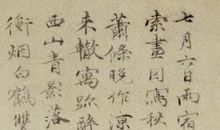 七月六日雨宿
索畫因寫秋
蕭條晚作涼
来轍寓跡醉
西山青影落
衝烟白鶴雙